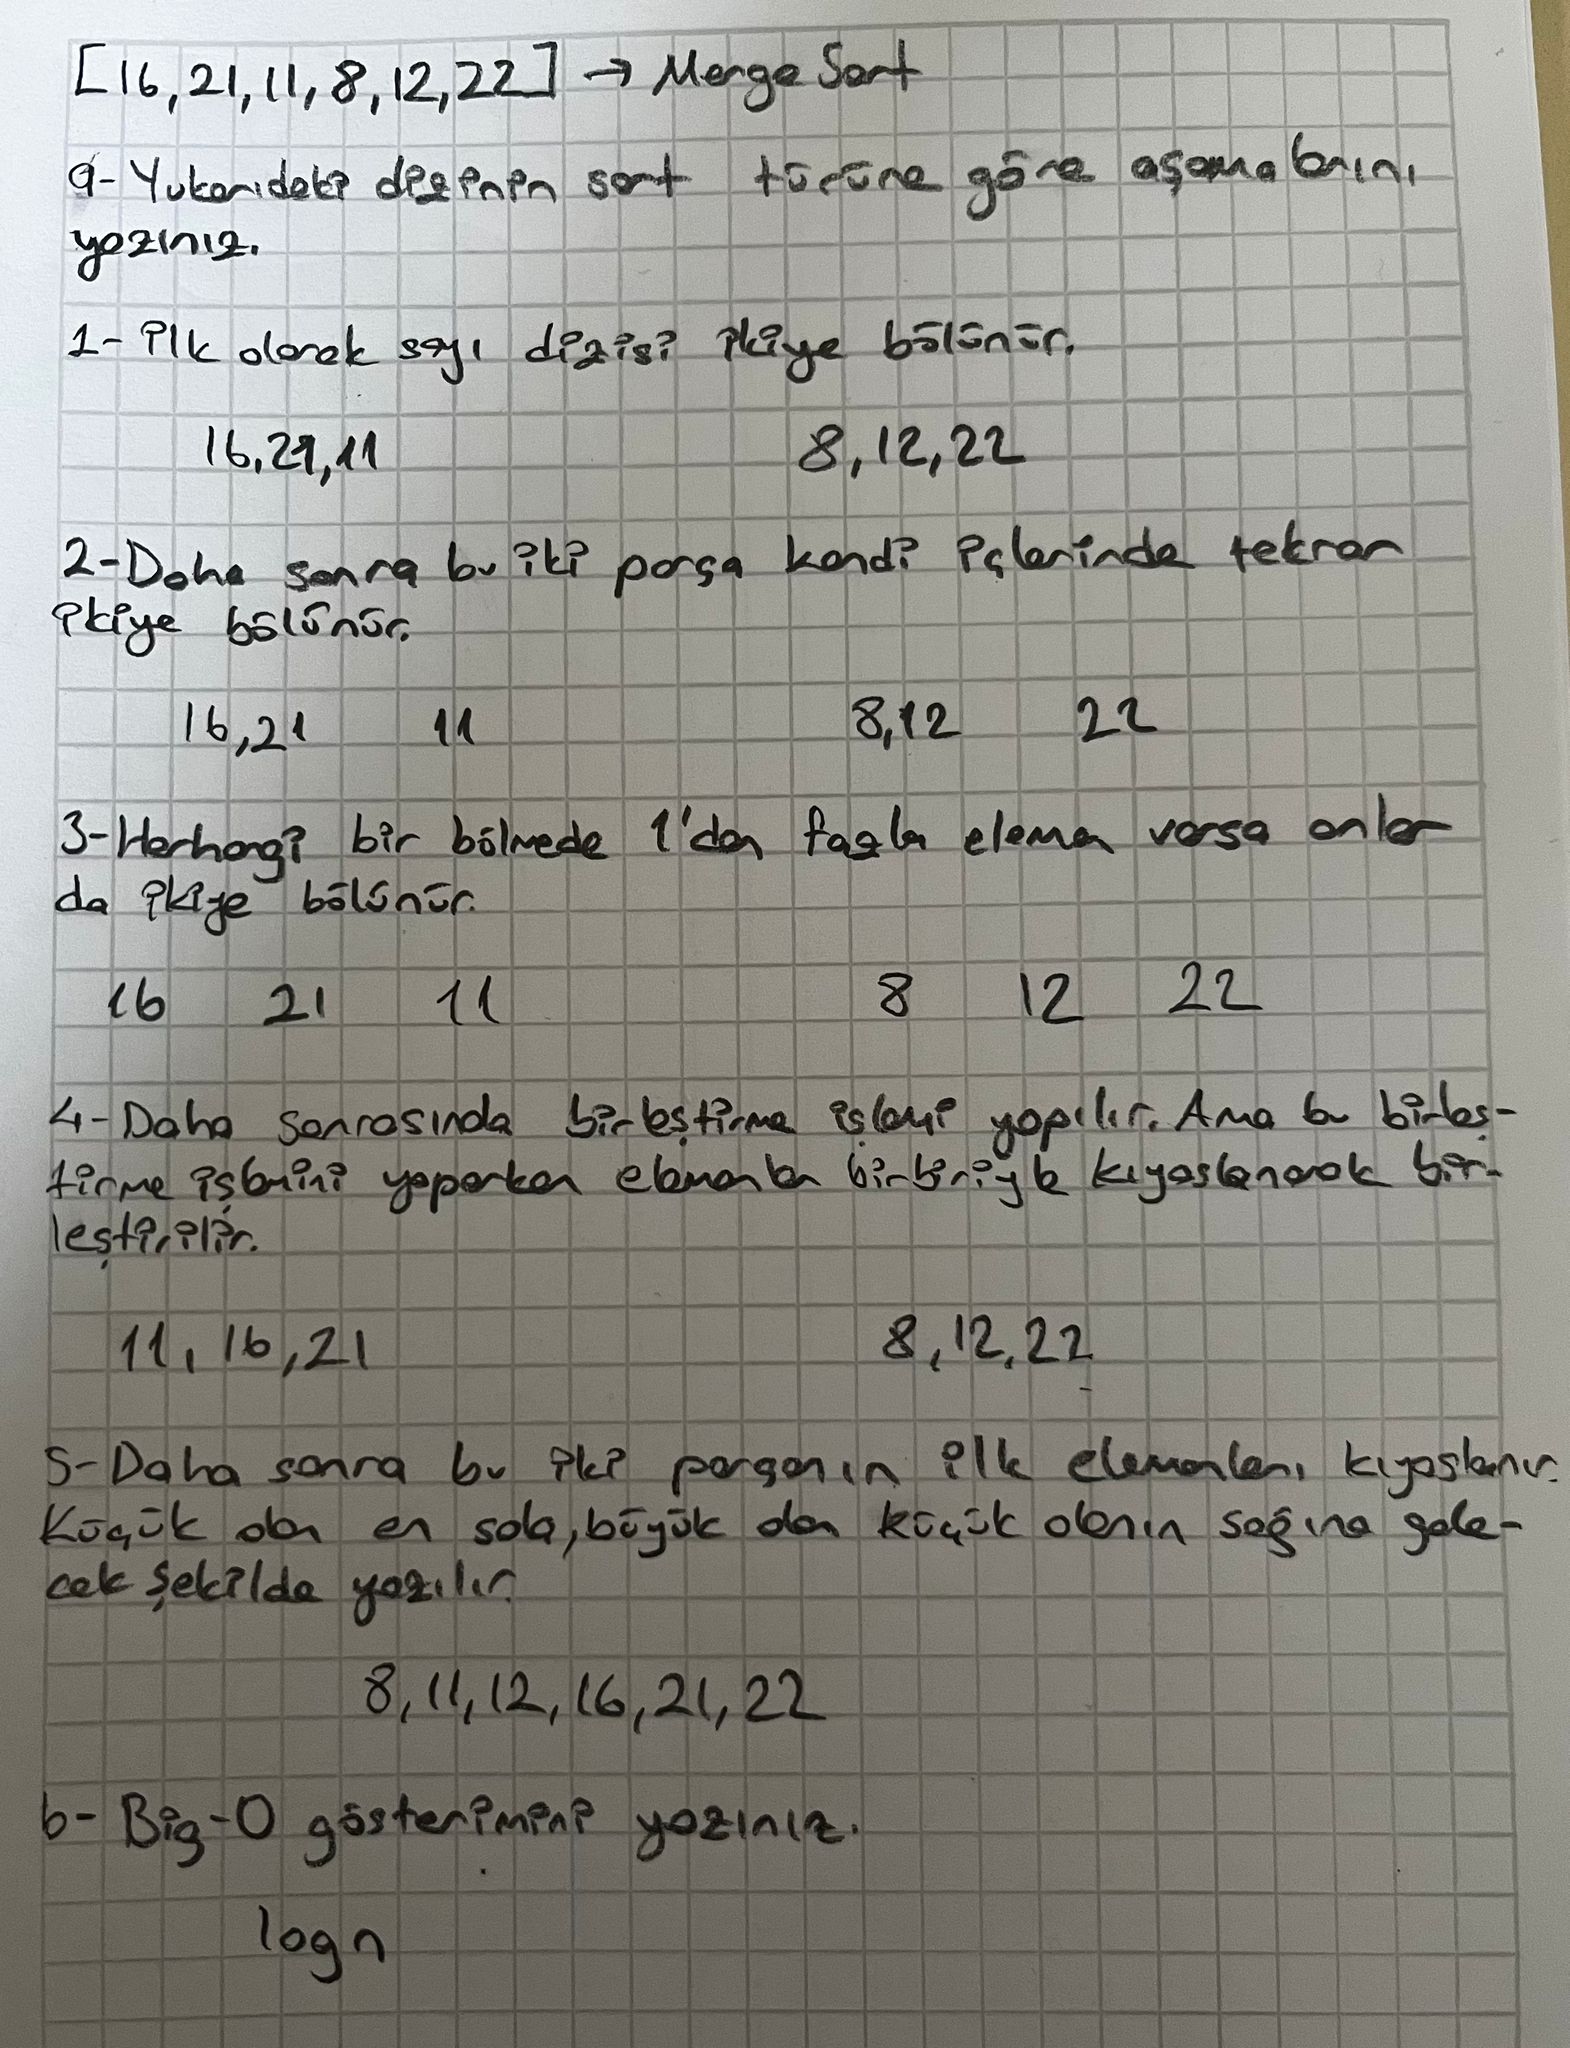 [16, 21, 11, 8, 12, 22] → Merge Sort
a- Yukarıdaki dizinin sort türüne göre aşamalarını
yazınız.
1- İlk olarak sayı dizisi ikiye bölünür.
16, 21, 11 8, 12, 22
2- Daha sonra bu iki parça kendi içlerinde tekrar
ikiye bölünür.
16, 21 11 8, 12 22
3- Herhangi bir bölmede 1'den fazla eleman varsa onlar
da ikiye bölünür.
16 21 11 8 12 22
4- Daha sonrasında birleştirme işlemi yapılır. Ama bu birleş-
tirme işlemini yaparken elemanlar birbiriyle kıyaslanarak bir-
leştirilir.
11, 16, 21 8, 12, 22
5- Daha sonra bu iki parçanın ilk elemanları kıyaslanır.
Küçük olan en sola, büyük olan küçük olanın sağına gele-
cek şekilde yazılır.
8, 11, 12, 16, 21, 22
b- Big-O gösterimini yazınız.
logn